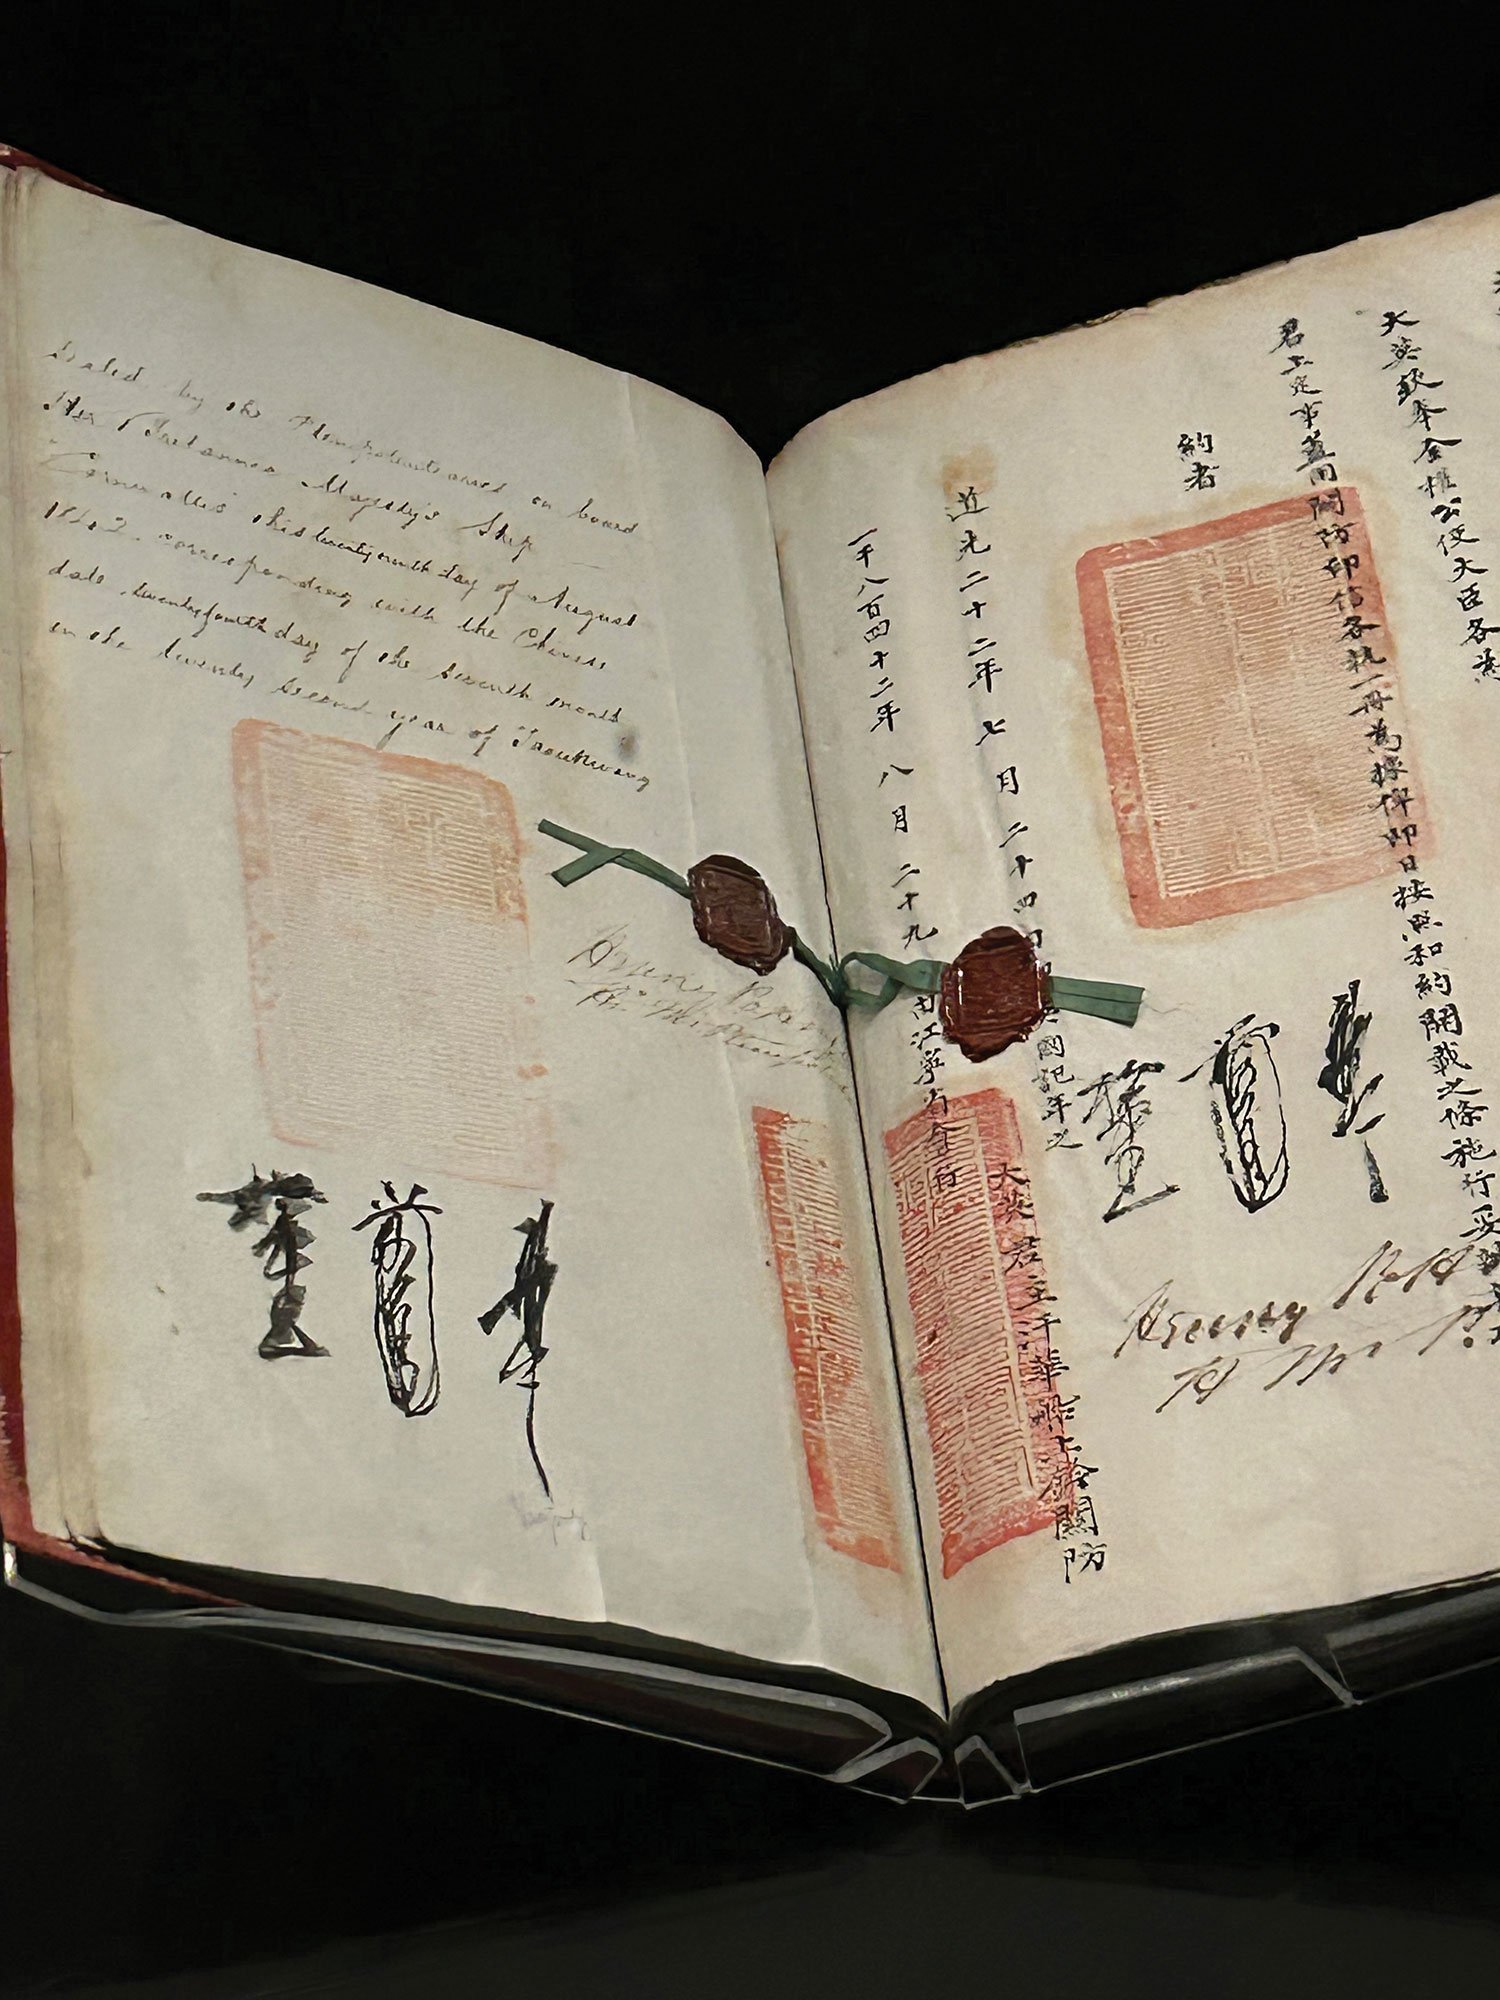 Dated by the Plenipotentiaries on board
Her Britannic Majesty's Ship
Cornwallis this twenty ninth day of August
1842. corresponding with the Chinese
date, twenty fourth day of the seventh month
in the twenty second year of Taoukwang
Henry
大英欽奉全權公使大臣各為
君上定事蓋用關防印信各執一冊為據俾即日按照和約開載之條施行妥
約者
道光二十二年七月二十四日
英國記年之
一千八百四十二年八月二十九
由江寧省會行
大英君主汗華麗船上鈐關防
Henry